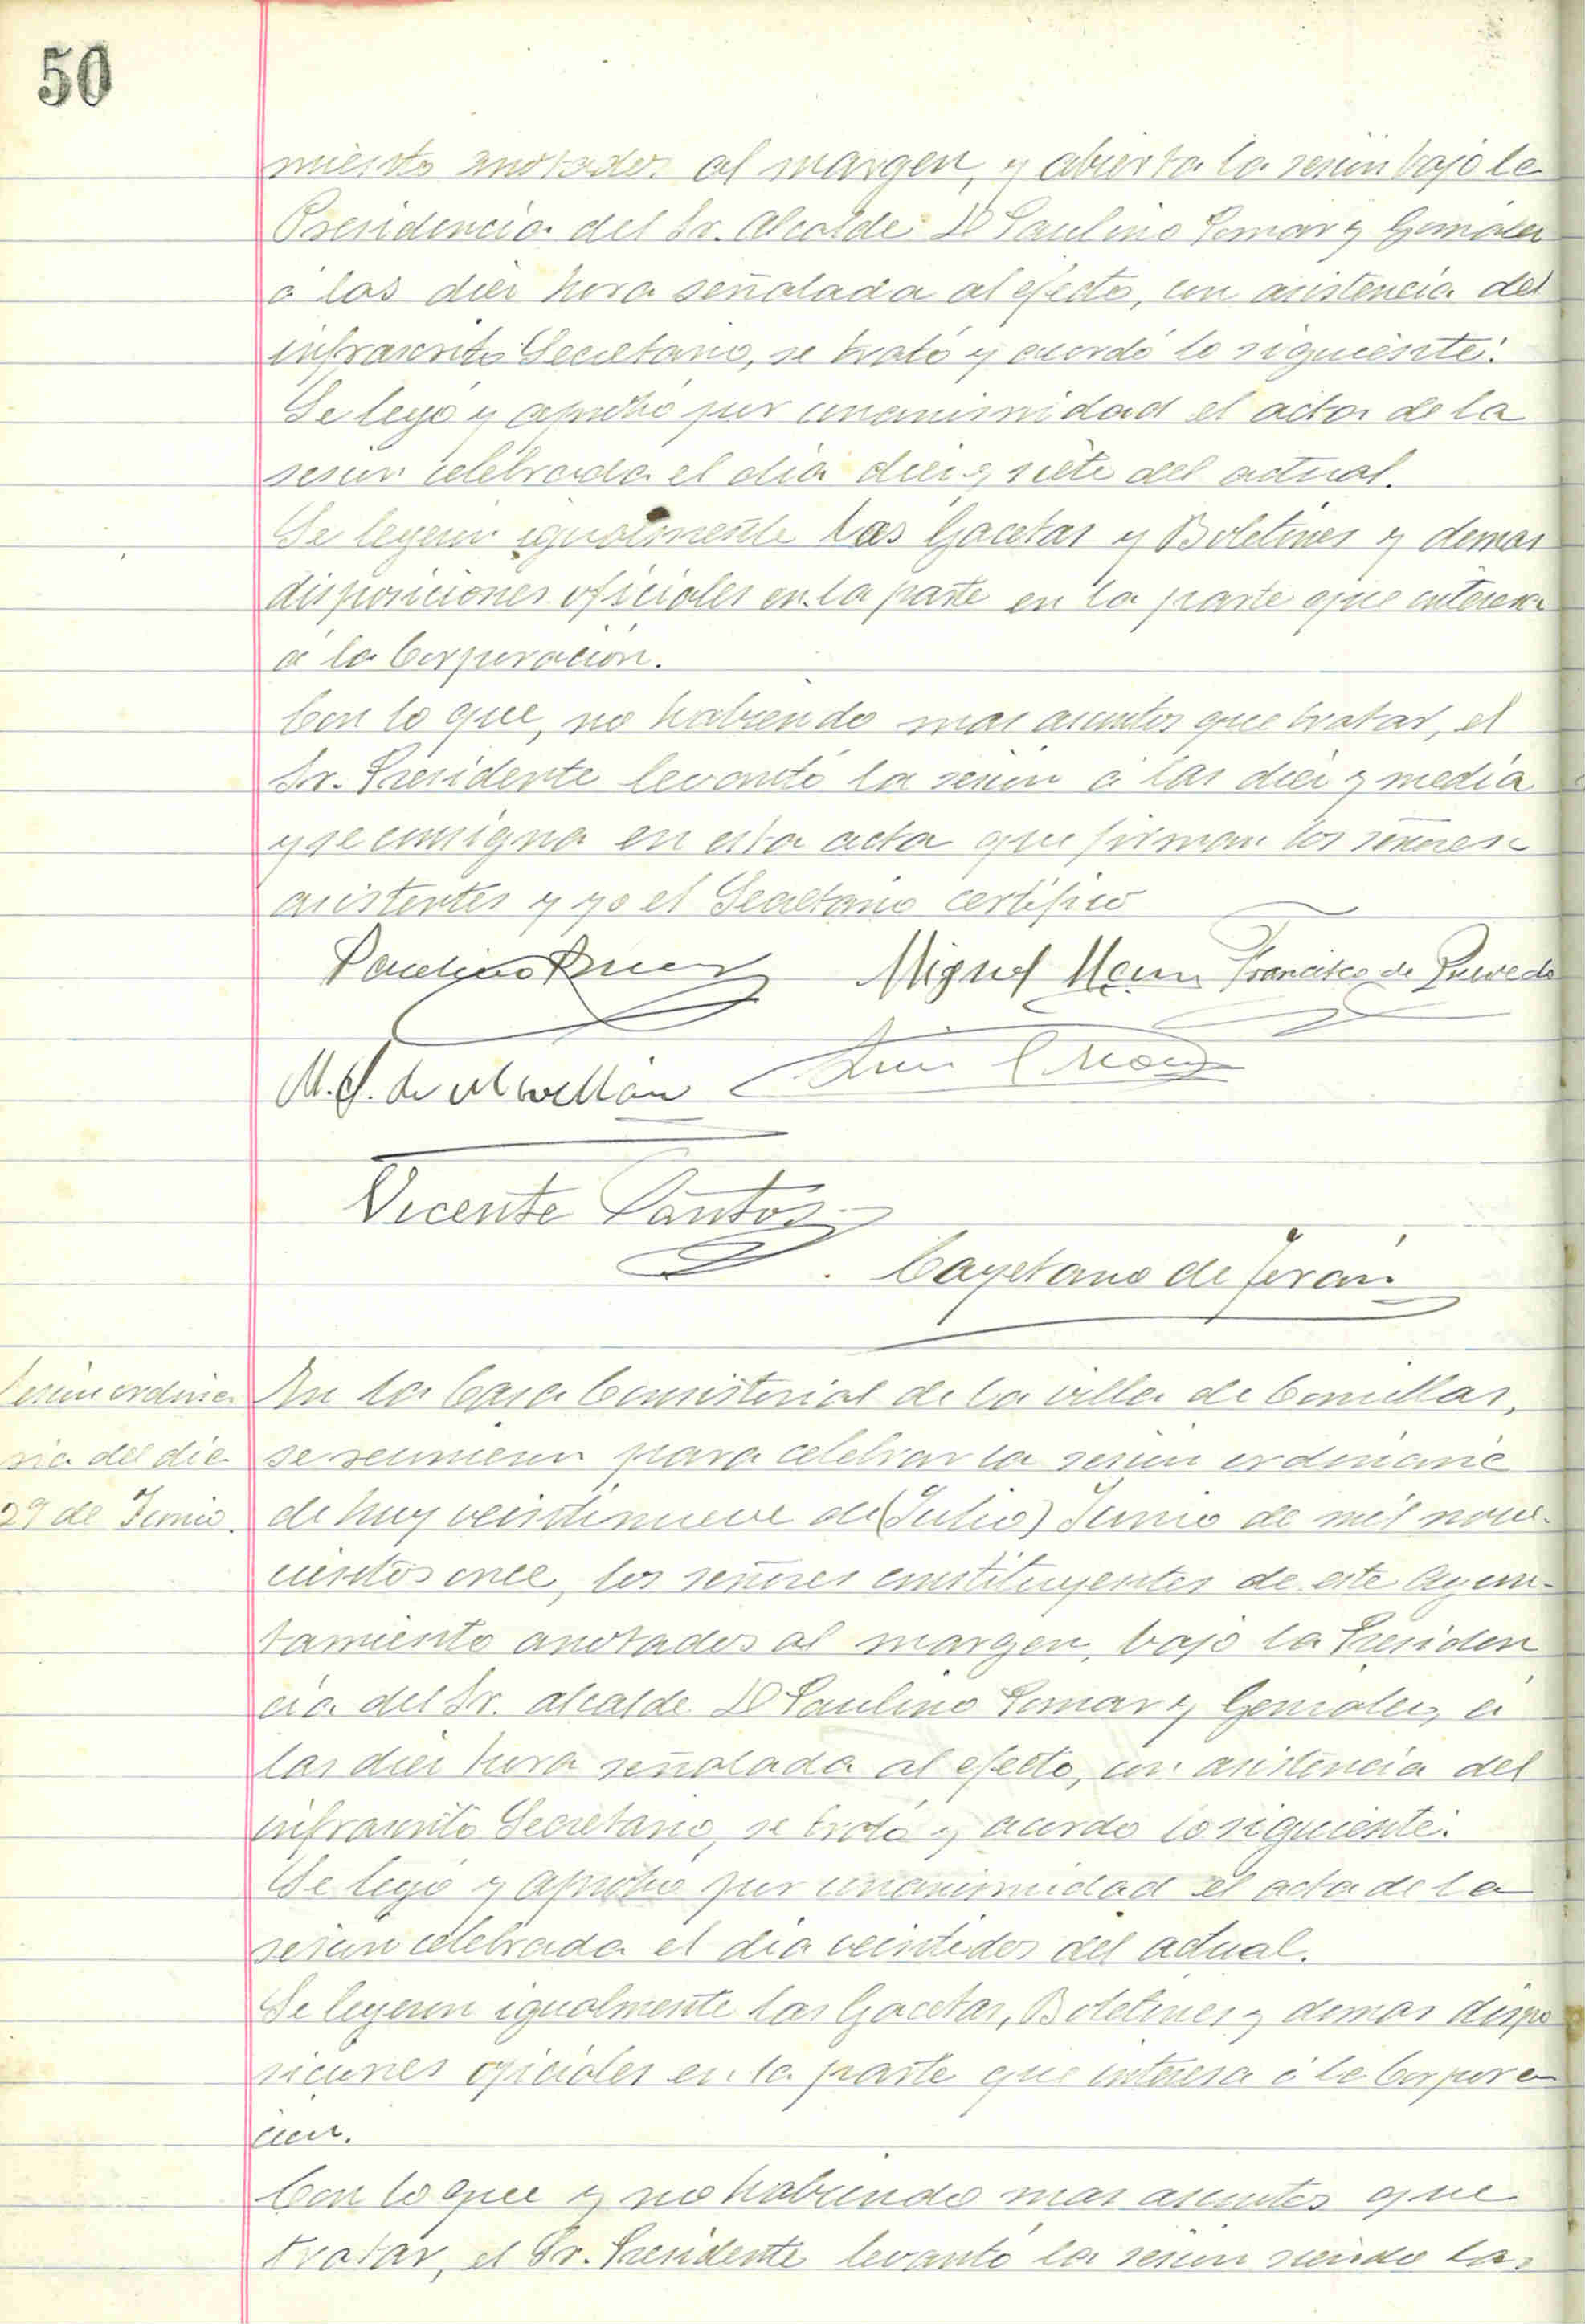 50
miento anotados al margen, y abierta la sesion bajo la
Presidencia del Sr. Alcalde D Paulino Pomar y Gonzalez
á las diez hora señalada al efecto, con asistencia del
infrascrito Secretario, se trató y acordó lo siguiente:
Se leyó y aprobó por unanimidad el acta de la
sesion celebrada el dia diez y siete del actual.
Se leyeron igualmente las Gacetas y Boletines y demas
disposiciones oficiales en la parte en la parte que interesa
á la Corporación.
Con lo que, no habiendo mas asuntos que tratar, el
Sr. Presidente levantó la sesion á las diez y media
y se consigna en esta acta que firman los señores
asistentes y yo el Secretario certifico
Miguel Francisco de Quevedo
M. S. de Movellán
Vicente Santos
Cayetano de Terán
Sesion ordina
ria del dia
29 de Junio.
En la Casa Consistorial de la villa de Comillas,
se reunieron para celebrar la sesion ordinaria
de hoy veintinueve de (Julio) Junio de mil nove-
cientos once, los señores constituyentes de este Ayun-
tamiento anotados al margen, bajo la Presiden
cia del Sr. alcalde D Paulino Pomar y Gonzalez, á
las diez hora señalada al efecto, con asistencia del
infrascrito Secretario, se trató y acordo lo siguiente:
Se leyó y aprobó por unanimidad el acta de la
sesion celebrada el dia veintidos del actual.
Se leyeron igualmente las Gacetas, Boletines y demas dispo
siciones oficiales en la parte que interesa á la Corpora
cion.
Con lo que y no habiendo mas asuntos que
tratar, el Sr. Presidente levantó la sesion siendo las